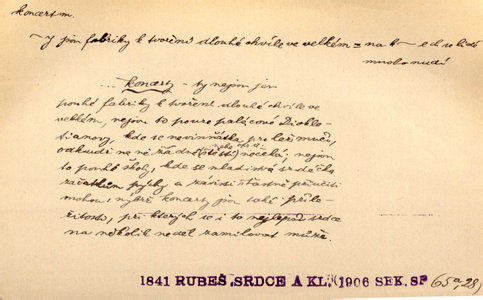 koncert m.
~ J jsou fabriky k tvoření dlouhé chvíle ve velkém = na k~ech se lidé
mnoho nudí
... koncerty – ty nejsou jen
pouhé fabriky k tvoření dlouhé chvíle ve
velkém, nejsou to pouze palácové Diokle-
tianovy, kde se neviňátka pro lež mučí,
odkudž se ně žádné (neb opět) štěstí nečeká; nejsou
to pouhé školy, kde se mladistvá srdéčka
začátkům pýchy a závisti šťastně přiučiti
mohou, nýbrž koncerty jsou také příle-
žitosti, při kterých se i to nejlepší srdce
na několik neděl zamilovat může.
1841 RUBEŠ, SRDCE A KL. (1906 SEK. SP 65a,28)